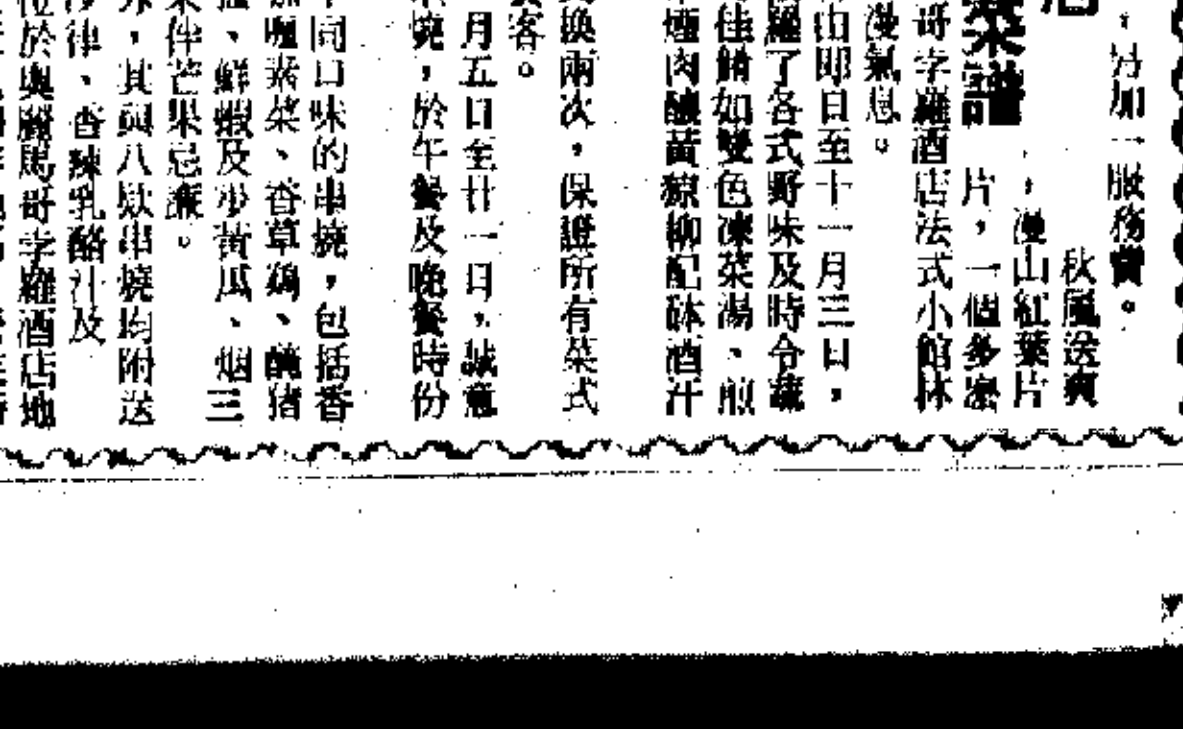 ，另加一服務費。
秋風送爽
，漫山紅葉片
菜譜
片，一個多麼
哥孛羅酒店法式小館林
漫氣息。
由即日至十一月三日，
羅了各式野味及時令蔬
佳餚如雙色凍菜湯、煎
煙肉釀黃鯮柳配砵酒汁
換兩次，保證所有菜式
客。
月五日至廿一日，誠意
燒，於午餐及晚餐時份
同口味的串燒，包括香
咖喱素菜、香草鷄、醃猪
、鮮蝦及沙黃瓜、烟三
伴芒果忌廉。
，其與八欵串燒均附送
沙律、香辣乳酪汁及
位於奧麗馬哥孛羅酒店地